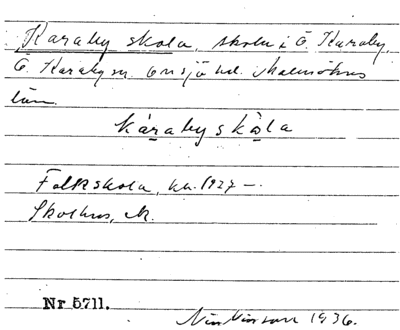 Karaby skola, skola i Ö. Karaby,
Ö. Karaby sn. Onsjö hd. Malmöhus
län.
kạ̊raby skọ̊la
Folkskola, kn. 1927 –.
Skolhus, N.
Nr 5711. 1936.